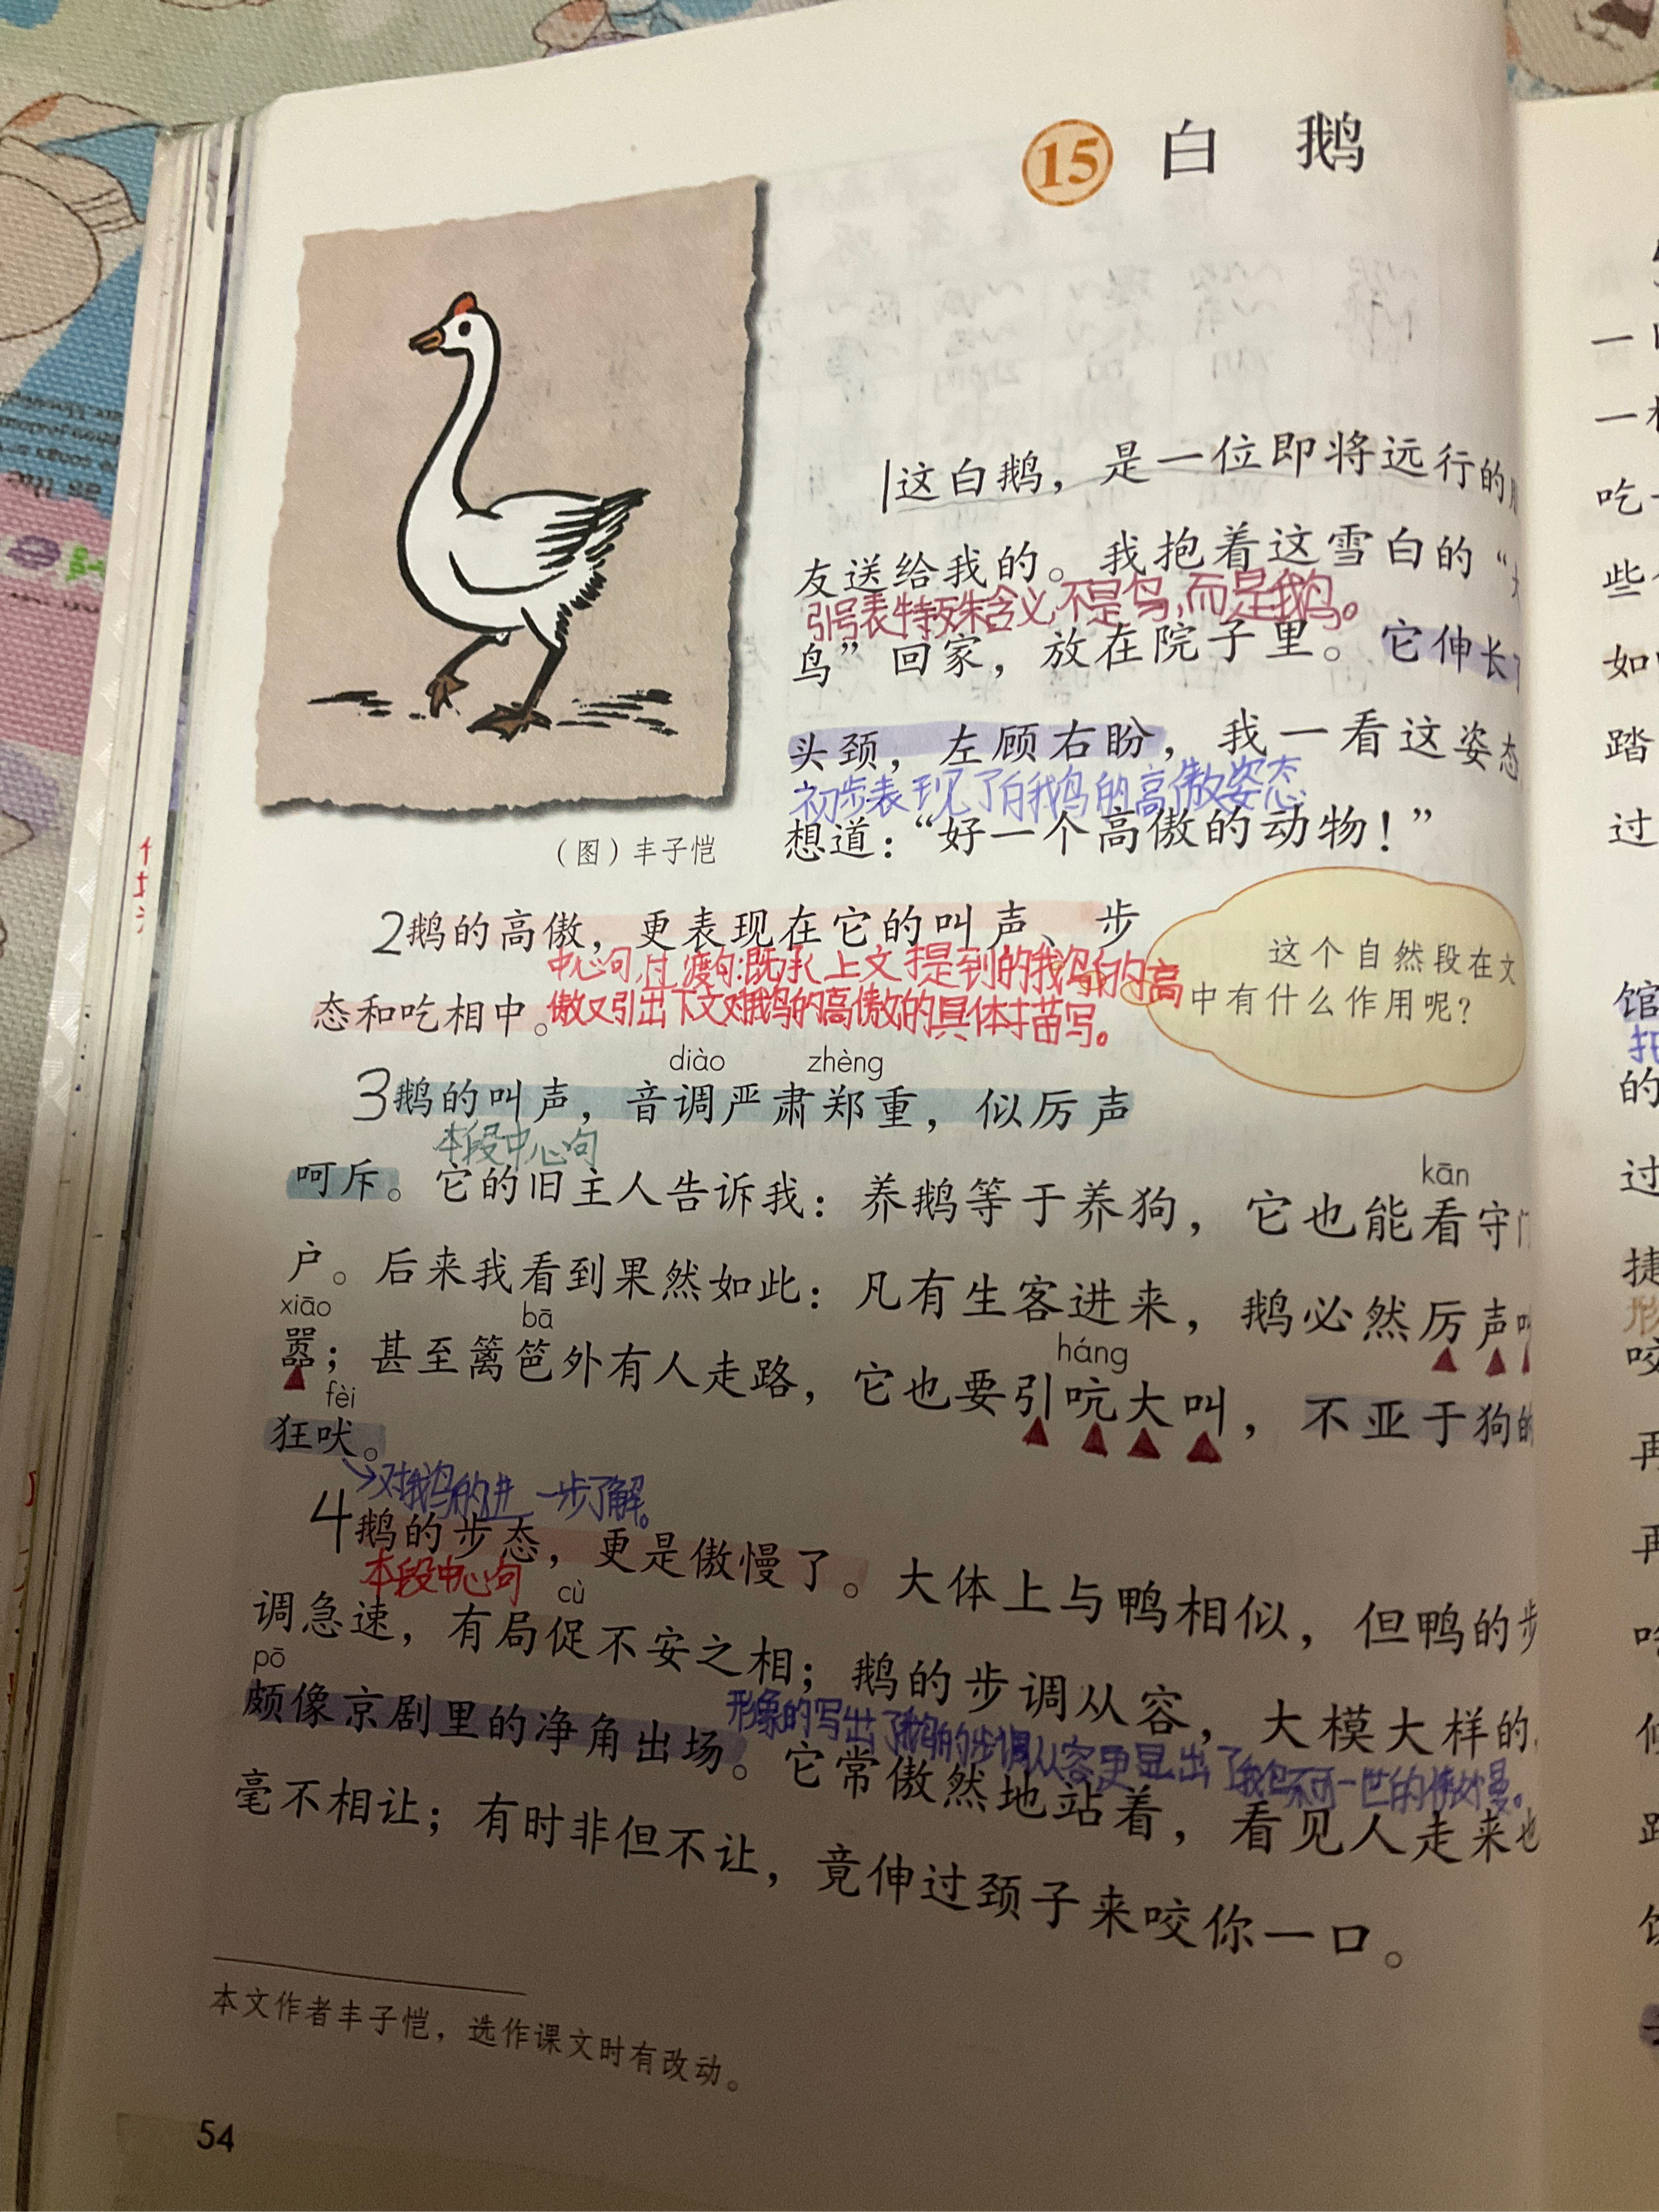 15 白 鹅
1这白鹅，是一位即将远行的
友送给我的。我抱着这雪白的“
引号表特殊含义，不是鸟，而是鹅。
鸟”回家，放在院子里。它伸长
头颈，左顾右盼，我一看这姿态
初步表现了白鹅的高傲姿态
想道：“好一个高傲的动物！”
（图）丰子恺
2鹅的高傲，更表现在它的叫声、步
中心句，过渡句：既承上文提到的鹅的高
态和吃相中。
傲又引出下文对鹅的高傲的具体描写。
这个自然段在文
中有什么作用呢？
diào zhèng
3鹅的叫声，音调严肃郑重，似厉声
本段中心句
呵斥。它的旧主人告诉我：养鹅等于养狗，它也能看守门
kān
户。后来我看到果然如此：凡有生客进来，鹅必然厉声
xiāo bā háng
嚣；甚至篱笆外有人走路，它也要引吭大叫，不亚于狗的
fèi
狂吠。
对鹅的进一步了解。
4鹅的步态，更是傲慢了。大体上与鸭相似，但鸭的步
本段中心句
cù
调急速，有局促不安之相；鹅的步调从容，大模大样的
pō
颇像京剧里的净角出场。它常傲然地站着，看见人走来也
形象的写出了鹅的步调从容更显出了鹅不可一世的傲慢。
毫不相让；有时非但不让，竟伸过颈子来咬你一口。
本文作者丰子恺，选作课文时有改动。
54
吃
些
如
踏
过
馆
的
过
捷
形
咬
再
再